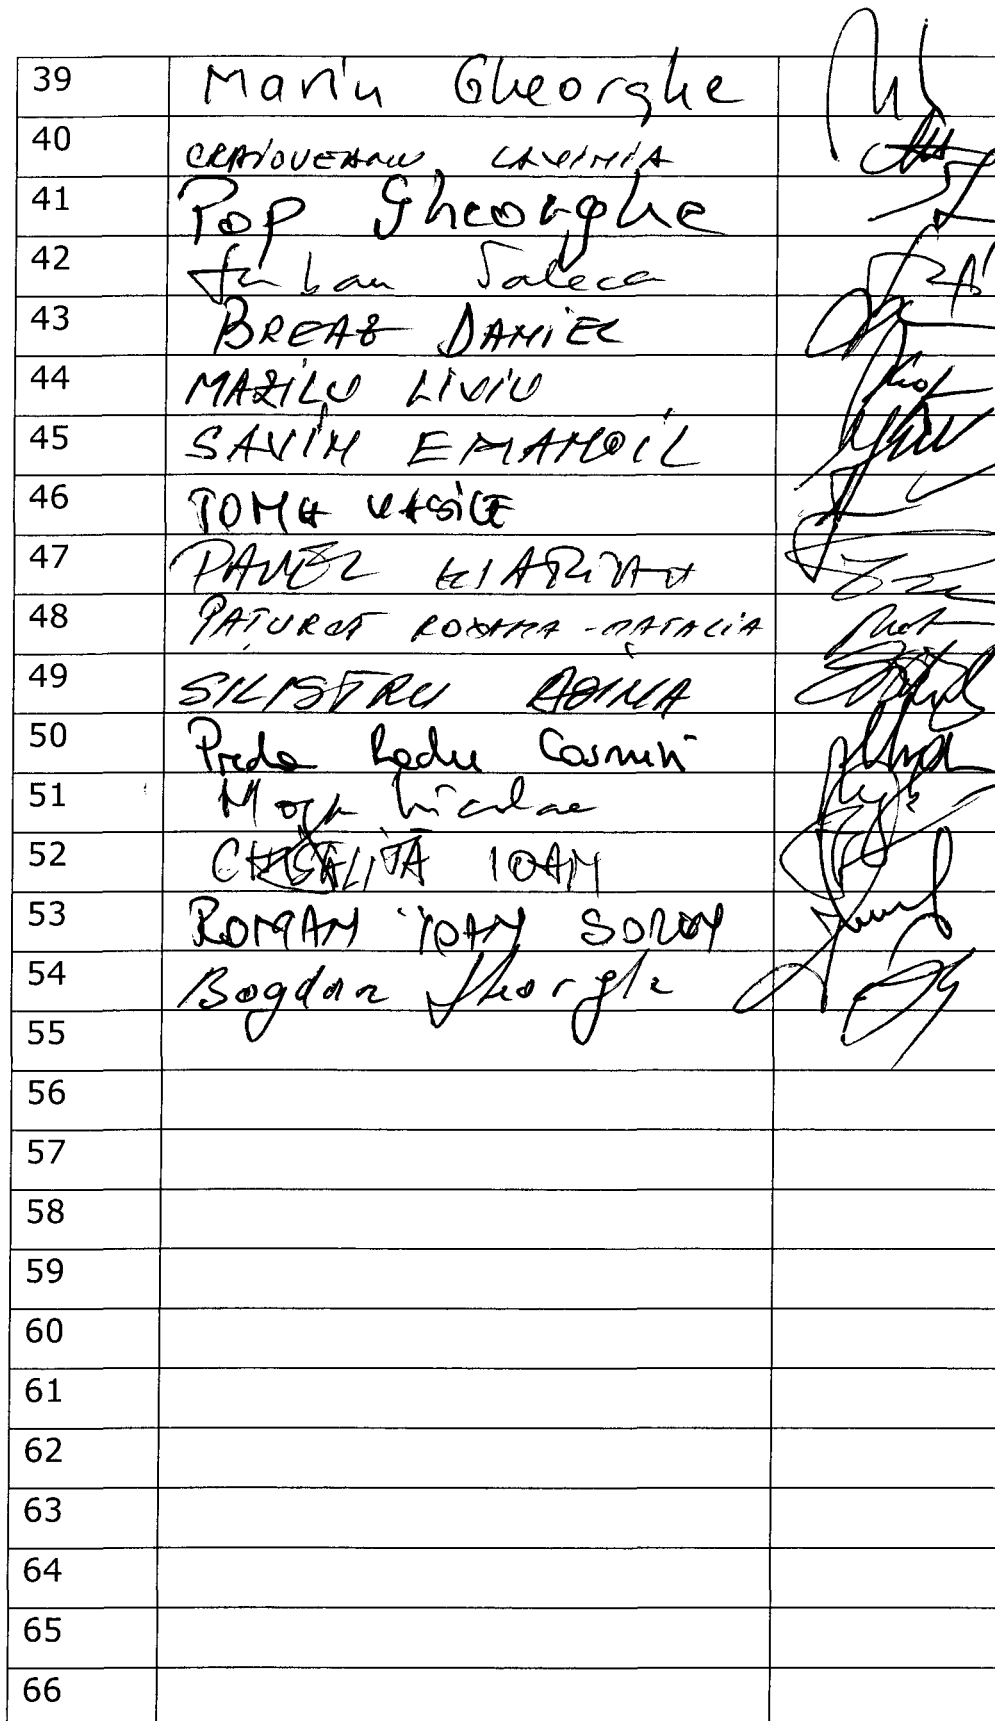 39 Marin Gheorghe
40 CRAIOVEANU LAVINIA
41 Pop Gheorghe
42
43 BREAZ DANIEL
44 MAZILU LIVIU
45 SAVIN EMANOIL
46 TOMA VASILE
47 PAVEL
48 PAȚURCĂ ROXANA-NATALIA
49 SILISTRU
50 Preda Radu Cosmin
51 Nicolae
52 CHISĂLIȚĂ IOAN
53 ROMAN IOAN SORIN
54 Bogdan Gheorghe
55
56
57
58
59
60
61
62
63
64
65
66